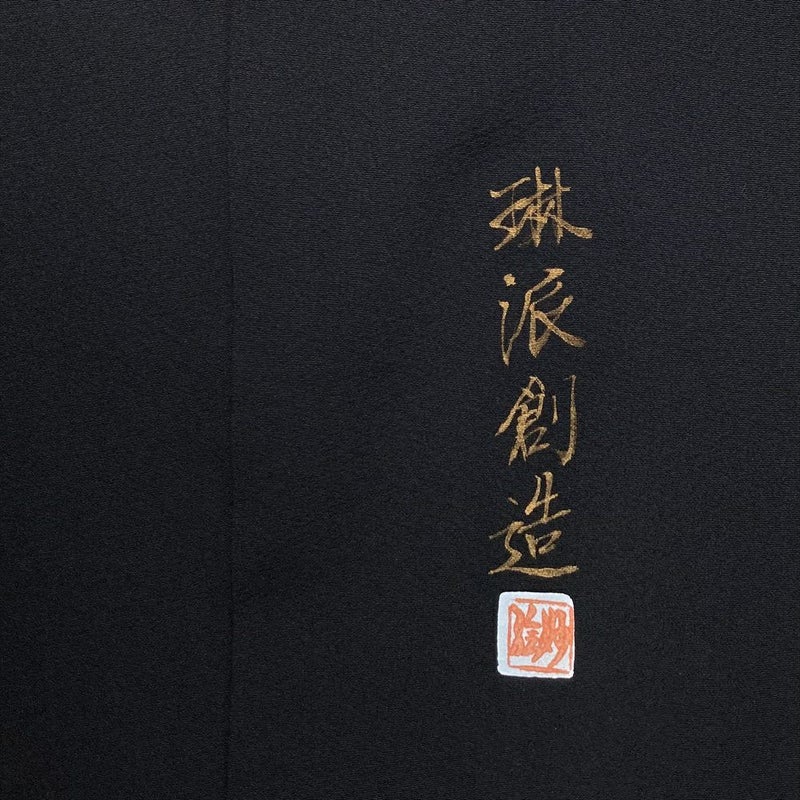 琳派創造